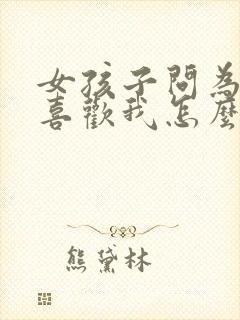 女孩子問為
喜歡我怎麼
熊黛林